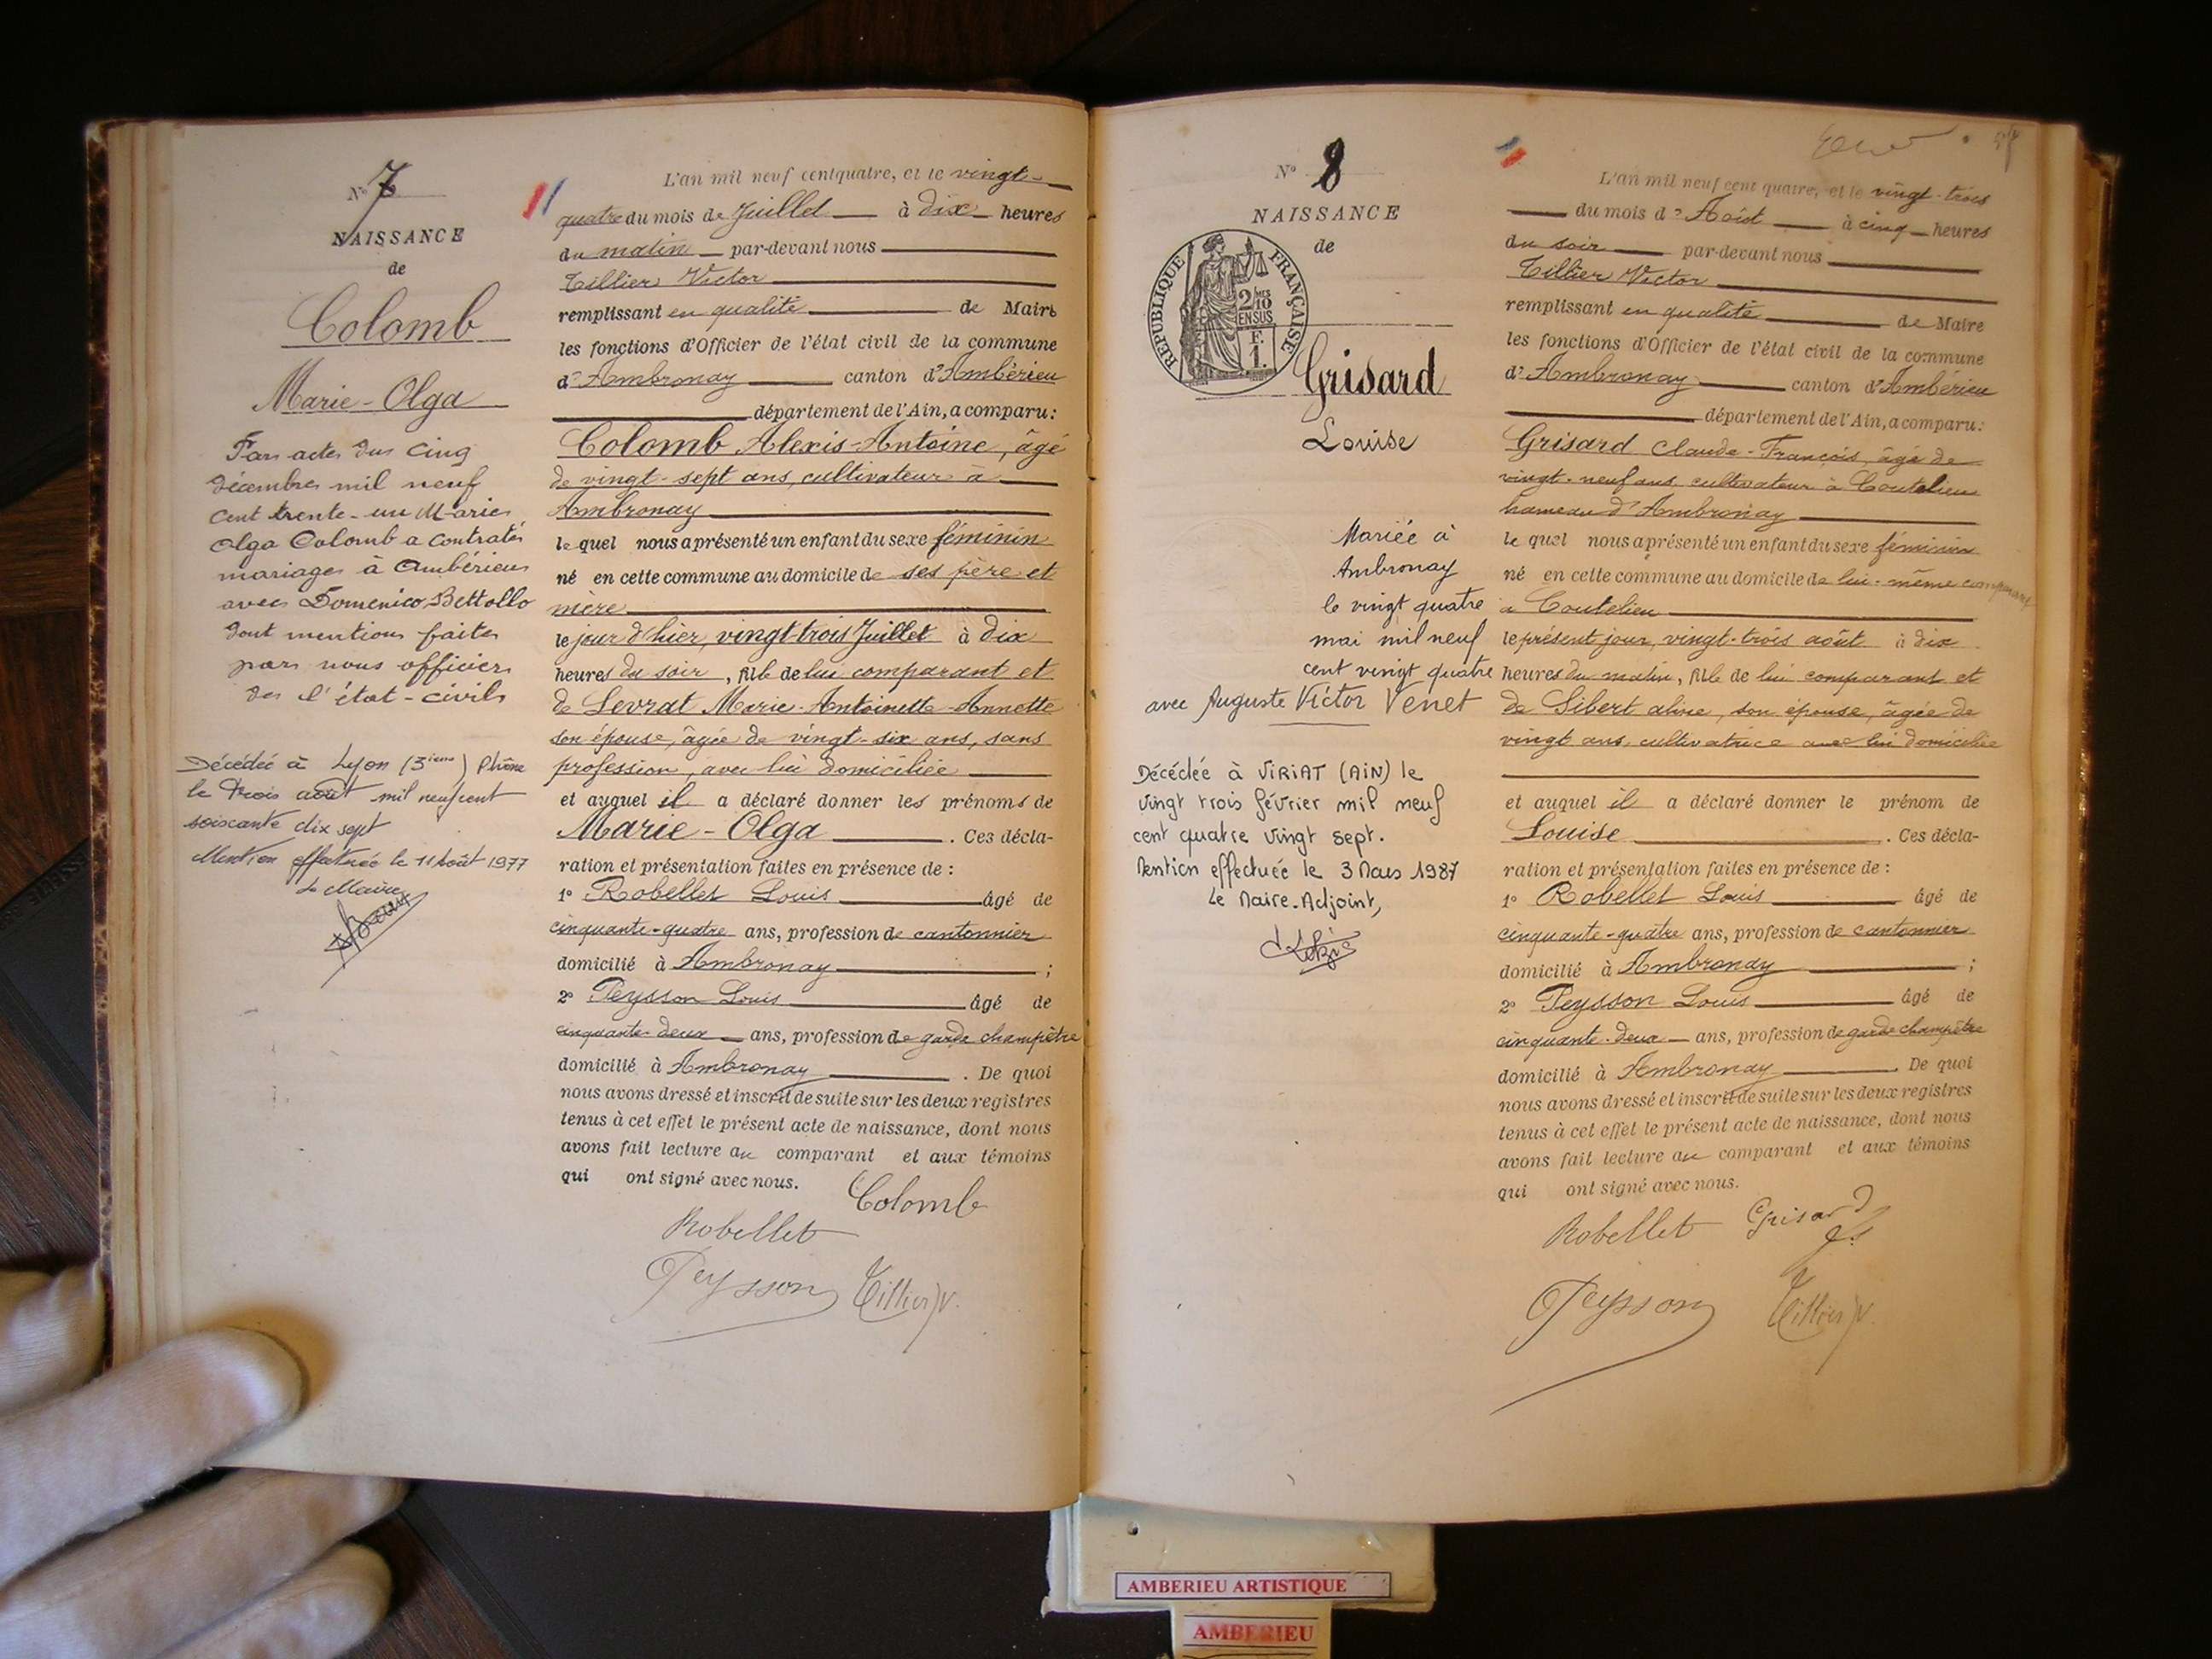 N° 7
NAISSANCE
de
Colomb
Marie-Olga
Par acte du cinq
décembre mil neuf
cent trente-un Marie
Olga Colomb a contracté
mariage à Ambérieu
avec Domenico Bettollo
dont mention faite
par nous officier
de l'état-civil
Décédée à Lyon (3ième) Rhône
le trois août mil neuf cent
soixante dix sept
Mention effectuée le 11 Août 1977
Le Maire
L'an mil neuf cent quatre, et le vingt-
quatre du mois de Juillet à dix heures
du matin par-devant nous
Tillier Victor
remplissant en qualité de Maire
les fonctions d'Officier de l'état civil de la commune
d'Ambronay canton d'Ambérieu
département de l'Ain, a comparu:
Colomb Alexis-Antoine, âgé
de vingt-sept ans, cultivateur à
Ambronay
le quel nous a présenté un enfant du sexe féminin
né en cette commune au domicile de ses père et
mère
le jour d'hier, vingt-trois Juillet à dix
heures du soir, fille de lui comparant et
de Levrat Marie-Antoinette-Annette
son épouse, âgée de vingt-six ans, sans
profession, avec lui domiciliée
et auquel il a déclaré donner les prénoms de
Marie-Olga. Ces décla-
ration et présentation faites en présence de :
1° Robellet Louis âgé de
cinquante-quatre ans, profession de cantonnier
domicilié à Ambronay ;
2° Peysson Louis âgé de
cinquante-deux ans, profession de garde champêtre
domicilié à Ambronay. De quoi
nous avons dressé et inscrit de suite sur les deux registres
tenus à cet effet le présent acte de naissance, dont nous
avons fait lecture au comparant et aux témoins
qui ont signé avec nous.
Colomb
Robellet
Peysson Tillier V.
N° 8
NAISSANCE
de
REPUBLIQUE FRANÇAISE
2/10 MES
EN SUS
F.
1.
Grisard
Louise
Mariée à
Ambronay
le vingt quatre
mai mil neuf
cent vingt quatre
avec Auguste Victor Venet
Décédée à VIRIAT (AIN) le
vingt trois février mil neuf
cent quatre vingt sept.
Mention effectuée le 3 Mars 1987
Le Maire-Adjoint,
L'an mil neuf cent quatre, et le vingt-trois
du mois d'Août à cinq heures
du soir par-devant nous
Tillier Victor
remplissant en qualité de Maire
les fonctions d'Officier de l'état civil de la commune
d'Ambronay canton d'Ambérieu
département de l'Ain, a comparu:
Grisard Claude-François, âgé de
vingt-neuf ans, cultivateur à Coutelieu
hameau d'Ambronay
le quel nous a présenté un enfant du sexe féminin
né en cette commune au domicile de lui-même comparant
à Coutelieu
le présent jour, vingt-trois août à dix
heures du matin, fille de lui comparant et
de Sibert aline, son épouse, âgée de
vingt ans, cultivatrice avec lui domiciliée
et auquel il a déclaré donner le prénom de
Louise. Ces décla-
ration et présentation faites en présence de :
1° Robellet Louis âgé de
cinquante-quatre ans, profession de cantonnier
domicilié à Ambronay ;
2° Peysson Louis âgé de
cinquante-deux ans, profession de garde champêtre
domicilié à Ambronay. De quoi
nous avons dressé et inscrit de suite sur les deux registres
tenus à cet effet le présent acte de naissance, dont nous
avons fait lecture au comparant et aux témoins
qui ont signé avec nous.
Robellet Grisard
Peysson Tillier V.
AMBERIEU ARTISTIQUE
AMBERIEU